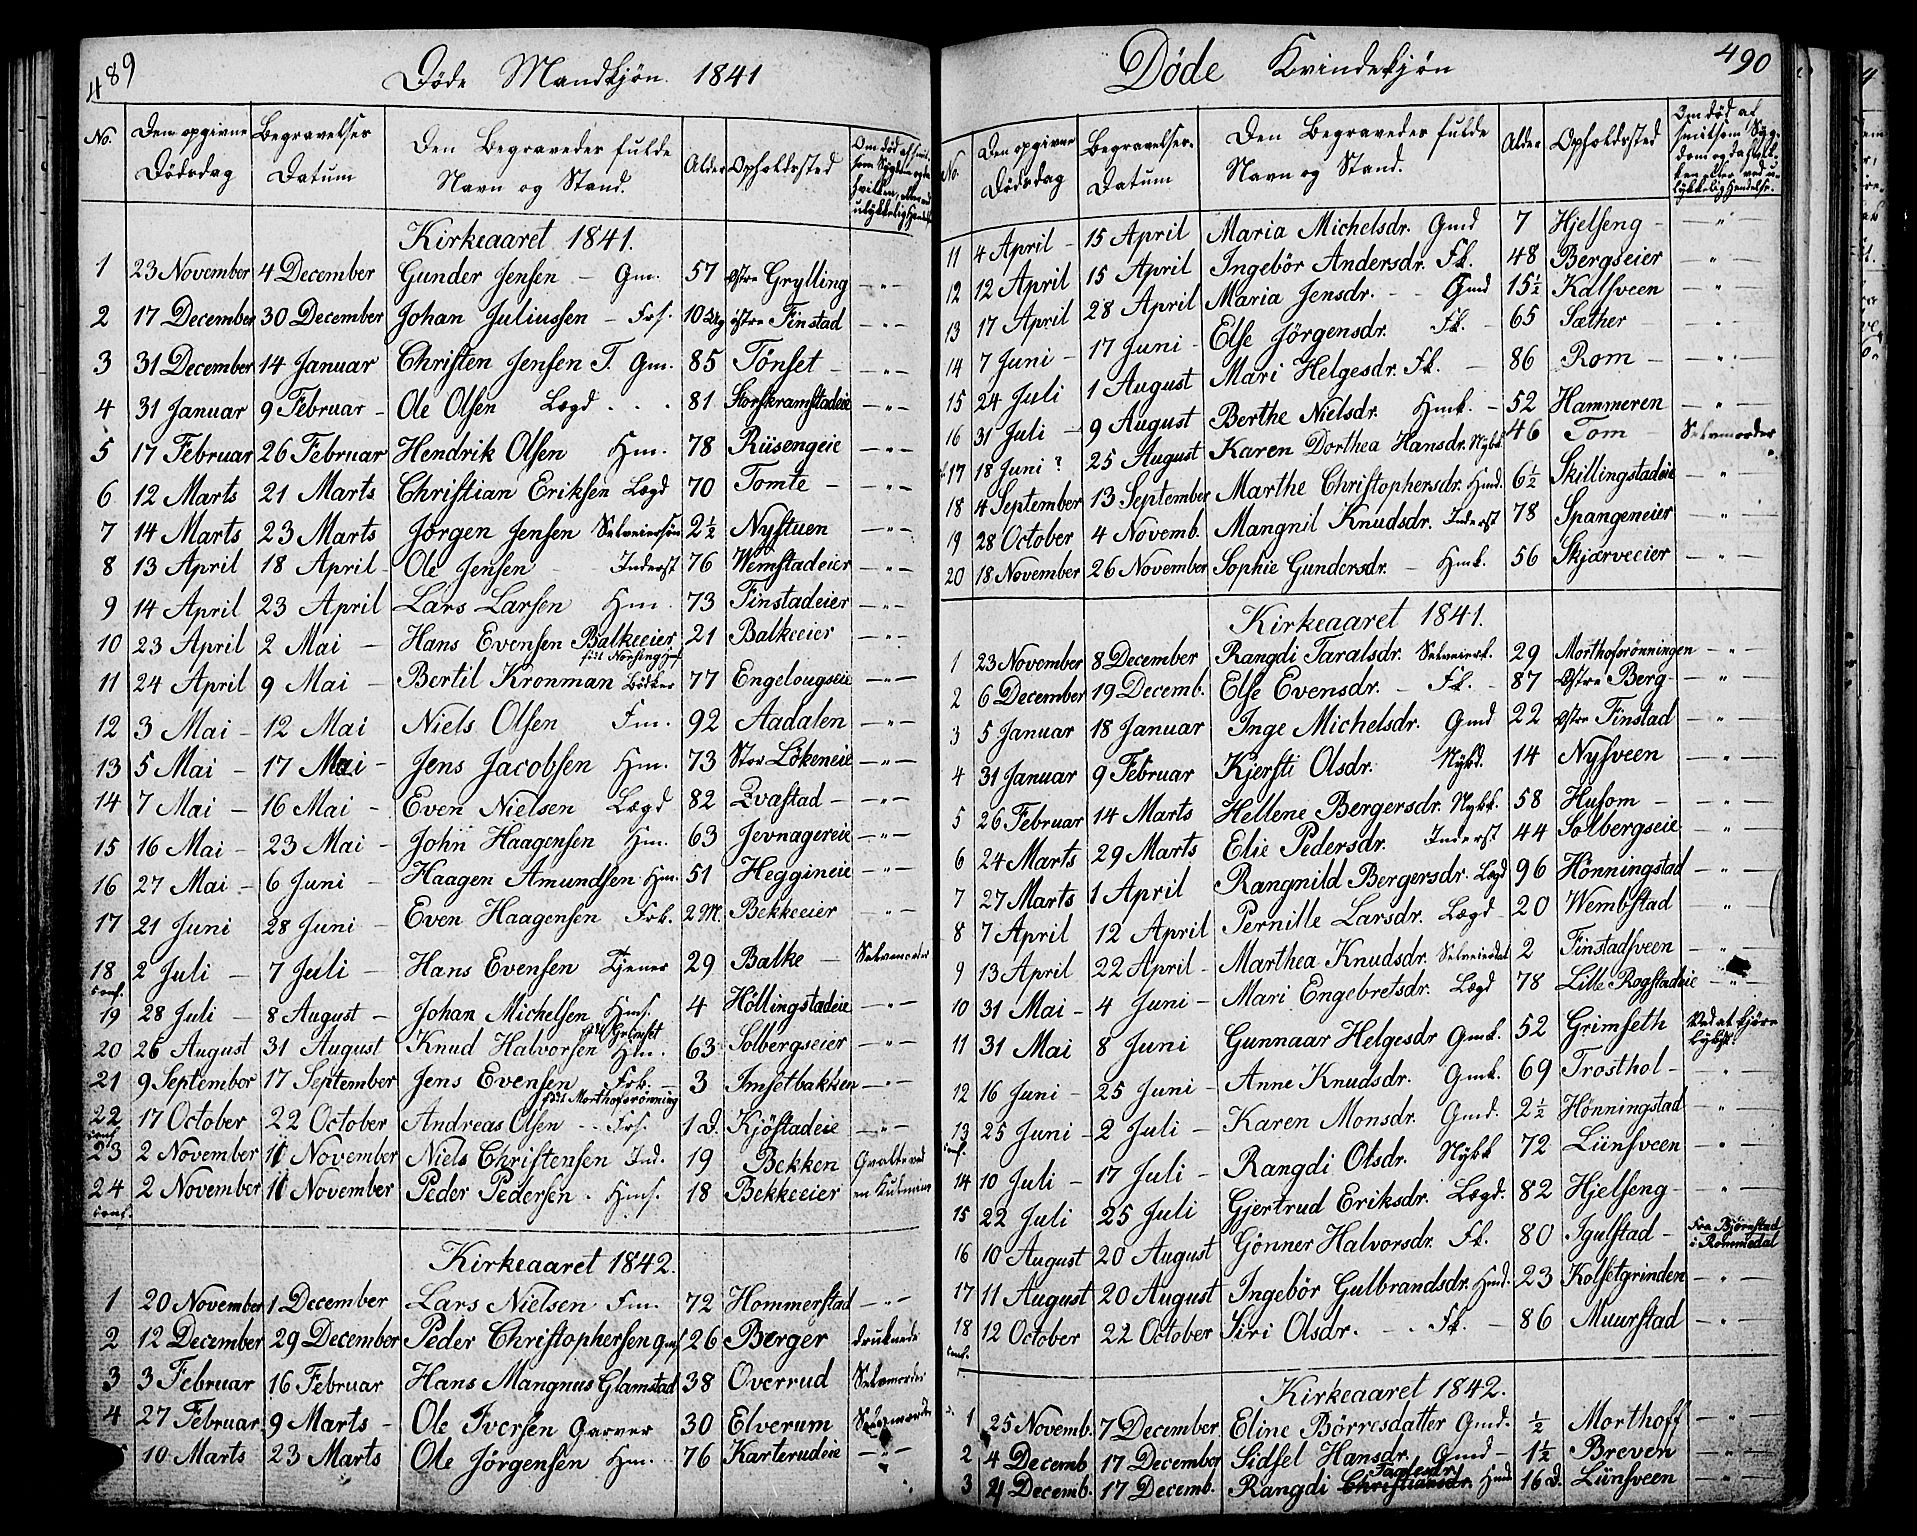 489
Döde Mandkjön. 1841
No. Den opgivne Dödsdag Begravelses Datum Den Begravedes fulde Navn og Stand. Alder Opholdssted Om död af smitsom Sygdom og da hvilken, eller ved ulykkelig Hændelse
Kirkeaaret 1841.
1 23 November 4 December Gunder Jensen - Gm. 57 östre Grylling -"-
2 17 December 30 December Johan Juliussen - Frs. 10 Ug östre Finstad -"-
3 31 December 14 Januar Christen Jensen T. Gm. 85 Tönset - -"-
4 31 Januar 9 Februar - Ole Olsen Lægd . . . 81 Storskramstadeie -"-
5 17 Februar 26 Februar Hendrik Olsen Hm. 78 Riisengeie -"-
6 12 Marts 21 Marts Christian Eriksen Lægd 70 Tomte - -"-
7 14 Marts 23 Marts Jörgen Jensen Selveiersön 2½ Nystuen -"-
8 13 April 18 April - Ole Jensen - Inderst 76 Wemstadeier -"-
9 14 April 23 April Lars Larsen Hm. 73 Finstadeier -"-
10 23 April 2 Mai - Hans Evensen Balkeeier 21 Balkeeier -"-
11 24 April 9 Mai - Bertil Kronman Bödker 77 Engelougseie -"-
12 3 Mai - 12 Mai Niels Olsen Fm. 92 Aadalen -"-
13 5 Mai - 17 Mai - Jens Jacobsen Hm. 73 Stor Lökeneie -"-
14 7 Mai - 16 Mai - Even Nielsen Lægd 82 Evastad - -"-
15 16 Mai - 23 Mai - John Haagensen Hm. 63 Jevnagereie -"-
16 27 Mai - 6 Juni - Haagen Amundsen Hm. 51 Heggineie -"-
17 21 Juni 28 Juni - Even Haagensen Frk. 2 M. Bekkeeier -"-
18 2 Juli - 7 Juli - Hans Evensen Tjener 29 Balke - Selvmorder
conf.
19 28 Juli - 8 August - Johan Michelsen Hms. 4 Höllingstadeie -"-
20 26 August 31 August Knud Halvorsen Hm. 63 Solbergseier -"-
21 9 September 17 September Jens Evensen Frk. - 3 Imsetbakken -"-
födt Morthoforönning
22 17 October 22 October Andreas Olsen - - Frs. 1 D. Kjöstadeie -"-
conf.
23 2 November 11 November Niels Christensen Ind. 19 Bekken Qvalte ved
24 2 November 11 November Peder Pedersen . Hms. 18 Bekkeeier en Kulmiine
conf.
Kirkeaaret 1842.
1 20 November 1 December Lars Nielsen Fm. 72 Hommerstad -"-
2 12 December 29 December Peder Christophersen Gms 26 Berger druknede
3 3 Februar 16 Februar Hans Mangnus Glamstad 38 Overrud Selvmorder
4 27 Februar 9 Marts - Ole Iversen Garver 30 Elverum Selvmorder
10 Marts 23 Marts Ole Jörgensen Hm. 76 Karterudeie -"-
490
Döde Kvindekjön
No. Den opgivne Dödsdag Begravelses- Datum Den Begravedes fulde Navn og Stand. Alder Opholdssted Om död af smitsom Sygdom og da hvilken eller ved ulykkelig Hendelse.
11 4 April - 15 April Maria Michelsdr. Gmd 7 Hjelseng - -"-
12 12 April 15 April Ingebör Andersdr. Fk. 48 Bergseier -"-
13 17 April 28 April Maria Jensdr. - - Gmd 15½ Kalsveen -"-
14 7 Juni - 17 Juni - Else Jörgensdr. Fk. - 65 Sæther -"-
15 24 Juli 1 August Mari Helgesdr. Fk. - 86 Rom - -"-
16 31 Juli - 9 August Berthe Nielsdr. Hmk. - 52 Hammeren -"-
17 18 Juni ? 25 August Karen Dorthea Hansdr. Nybk 46 Tom Selvmorder
18 4 September 13 September Marthe Christophersdr. Hmd. 6½ Skillingstadeie -"-
19 28 October 4 Novemb. Mangnil Knudsdr. Inderst 78 Spangeneier -"-
20 18 November 26 November Sophie Gundersdr. - Hmk. 56 Skjærveeier -"-
Kirkeaaret 1841.
1 23 November 8 December Rangdi Taralsdr. Selveierk. 29 Morthoforönningen -"-
2 6 December 19 Decemb. Else Evensdr. - Fk. - 87 östre Berg - -"-
3 5 Januar 18 Januar Inge Michelsdr. Gmd 22 östre Finstad -"-
4 31 Januar 9 Februar Kjersti Olsdr. Nykd. 14 Nysveen -"-
5 26 Februar 14 Marts Hellene Bergersdr. Nykk. 58 Husom - -"-
6 24 Marts 29 Marts Elie Pedersdr. Inderst 44 Solbergseie -"-
7 27 Marts 1 April Rangnild Bergersdr. Lægd 96 Hönningstad -"-
8 7 April 12 April Pernille Larsdr. Lægd - 20 Wembstad -"-
9 13 April 22 April - Marthea Knudsdr. Selveierdat 2 Finstadsveen -"-
10 31 Mai - 4 Juni - Mari Engebretsdr. Lægd 78 Lille Rogstadeie -"-
11 31 Mai 8 Juni Gunnaar Helgesdr Gmk. 52 Grimseth Ved at kjöre
12 16 Juni - 25 Juni - Anne Knudsdr. Gmk. 69 Trosthol - -"-
13 25 Juni - 2 Juli - Karen Monsdr. Gmd. 2½ Hönningstad -"-
conf.
14 10 Juli - 17 Juli - Rangdi Olsdr. Nykk 72 Lünsveen -"-
15 22 Juli 25 Juli Gjertrud Eriksdr. Lægd. 82 Hjelseng - -"-
16 10 August 20 August Gönner Halvorsdr. Fk. 80 Igulstad - Fra Björnstad i Rommedal
17 11 August 20 August Ingebör Gulbrandsdr. Hmd. 23 Kolsetgrinden -"-
18 12 October 22 October Siri Olsdr. - . Fk. - 86 Muurstad -"-
conf.
Kirkeaaret 1842.
1 25 Novemb. 7 December Eline Börresdatter Gmd. ½ Morthoff -"-
2 4 Decemb 17 December Sidsel Hansdr. Gmd - 1½ Breven -"-
Taalesdr.
3 4 Decemb. 17 Decemb. Rangdi Christiansdr. Hmd 16 D. Lünsveen -"-